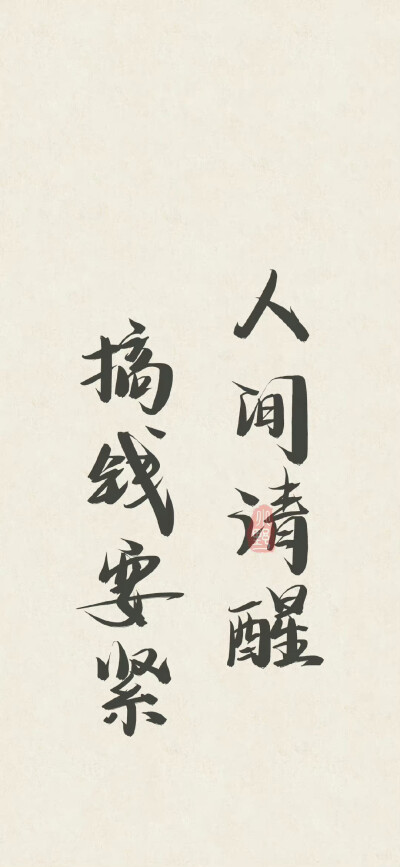 人间清醒
搞钱要紧